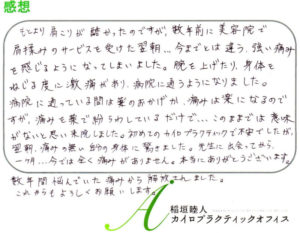 感想
もともと肩こりが酷かったのですが、数年前に美容院で
肩揉みのサービスを受けた翌朝…今までとは違う、強い痛み
を感じるようになってしまいました。腕を上げたり、身体を
ねじる度に激痛があり、病院に通うようになりました。
病院に通っている間は薬のおかげか、痛みは楽になるので
すが、痛みを薬で紛らわしているだけで…このままでは意味
がないと思い来院しました。初めてのカイロプラクティックで不安でしたが、
翌朝、痛みの無い自分の身体に驚きました。先生に出会ってから、
一ヶ月…今では全く痛みがありません。本当にありがとうございます。
数年間悩んでいた痛みから解放されました。
これからもよろしくお願いします。
稲垣睦人
カイロプラクティックオフィス